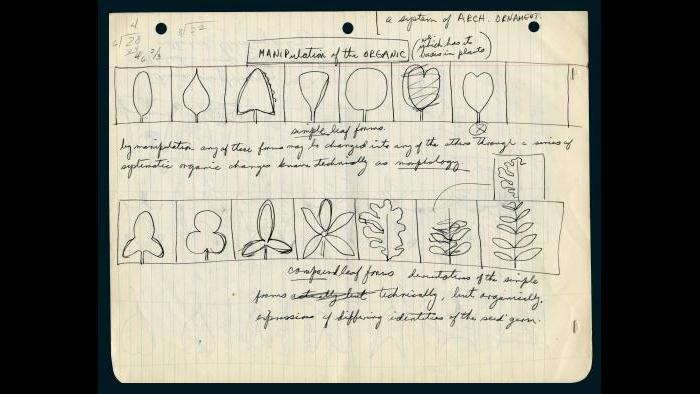 a system of ARCH. ORNAMENT.
4
MANIPULATION of the ORGANIC (which has its
basis in plants)
simple leaf forms.
by manipulation any of these forms may be changed into any of the others through a series of
systematic organic changes known technically as morphology.
compound leaf forms denotations of the simple
forms actually but technically, but organically,
expressions of differing identities of the seed germ.